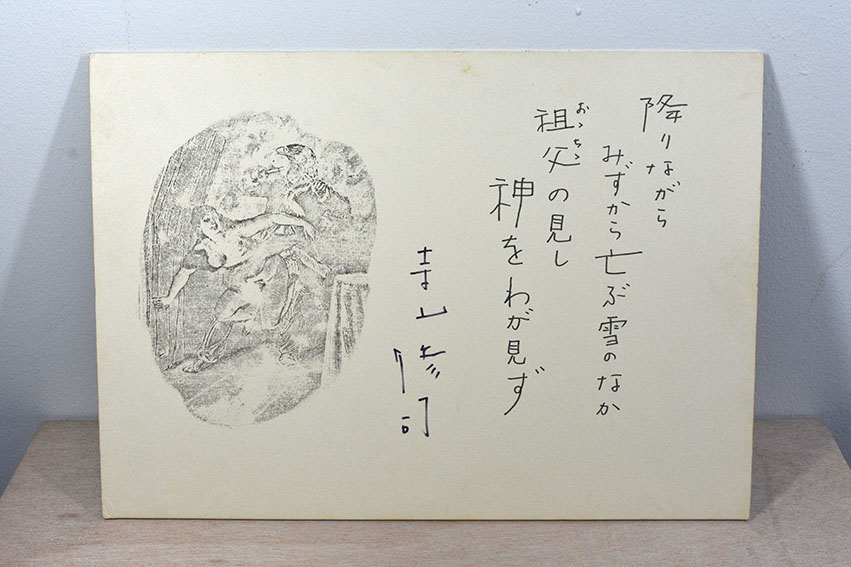 降りながら
みずから亡ぶ雪のなか
祖父の見し
おゝちゝ
神をわが見ず
寺山修司